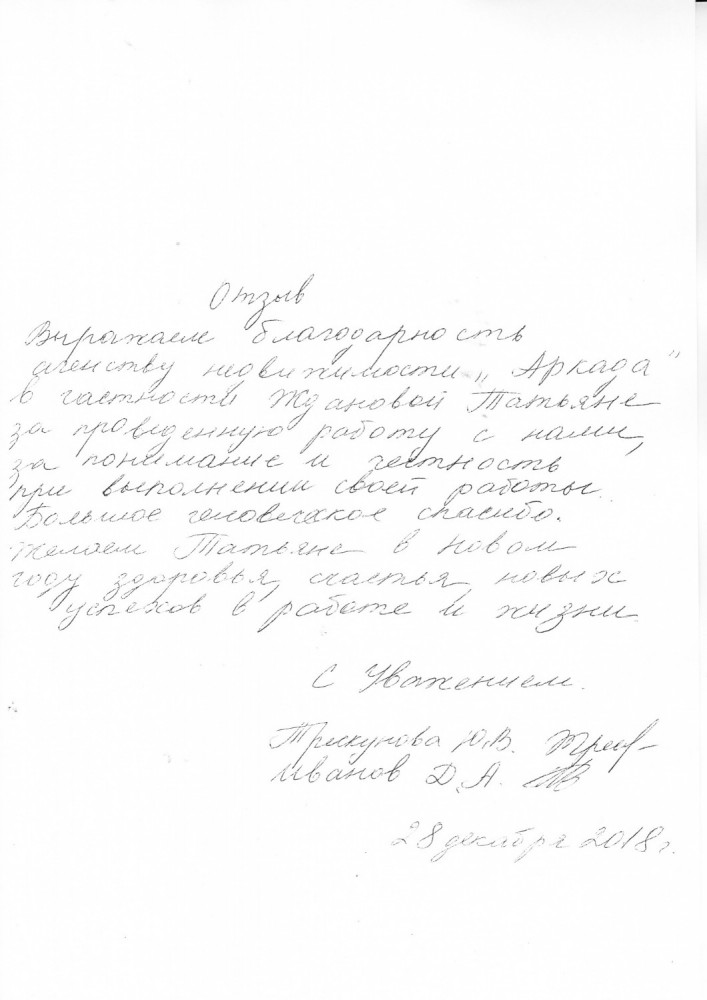 Отзыв
Выражаем благодарность
агенству недвижимости „Аркада"
в частности Ждановой Татьяне
за проведенную работу с нами,
за понимание и честность
при выполнении своей работы.
Большое человеческое спасибо.
Желаем Татьяне в новом
году здоровья, счастья, новых
успехов в работе и жизни.
С Уважением.
Трискунова Ю.В.
Иванов Д.А.
28 декабря 2018 г.